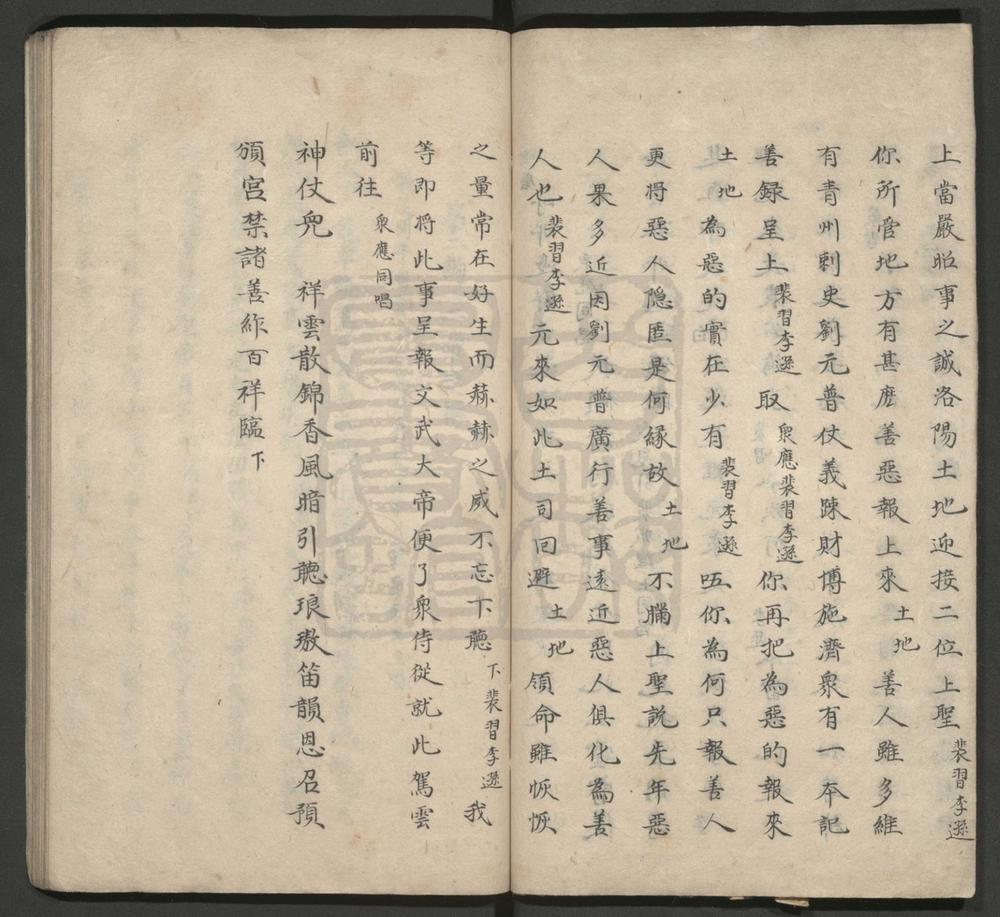 上當嚴昭事之誠洛陽土地迎接二位上聖裴習李遜
你所管地方有甚麽善惡報上來土地善人雖多維
有青州刺史劉元普仗義踈財博施濟衆有一本記
善録呈上裴習李遜取衆應裴習李遜你再把為惡的報來
土地為惡的實在少有裴習李遜𠳐你為何只報善人
更将惡人隠匿是何縁故土地不瞞上聖説先年惡
人果多近因劉元普廣行善事遠近惡人俱化為善
人也裴習李遜元來如此土司回避土地領命雖恢恢
之量常在好生而赫赫之威不忘下聽下裴習李遜我
等即將此事呈報文武大帝便了衆侍從就此駕雲
前往衆應同唱
神仗兒　祥雲散錦香風暗引聽琅璈笛韻恩召預
頒宫禁諸善作百祥臨下